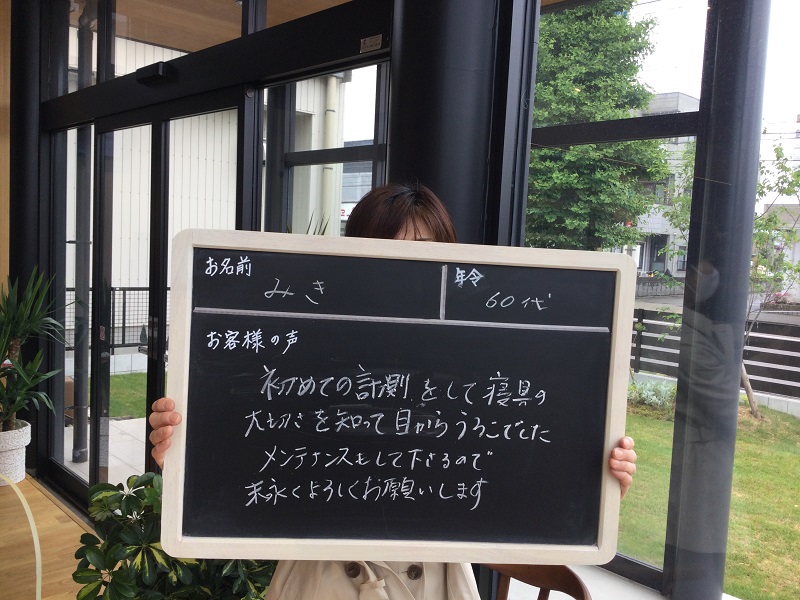 お名前
みき
年令
60代
お客様の声
初めての計測をして寝具の
大切さを知って目からうろこでした
メンテナンスもして下さるので
末永くよろしくお願いします